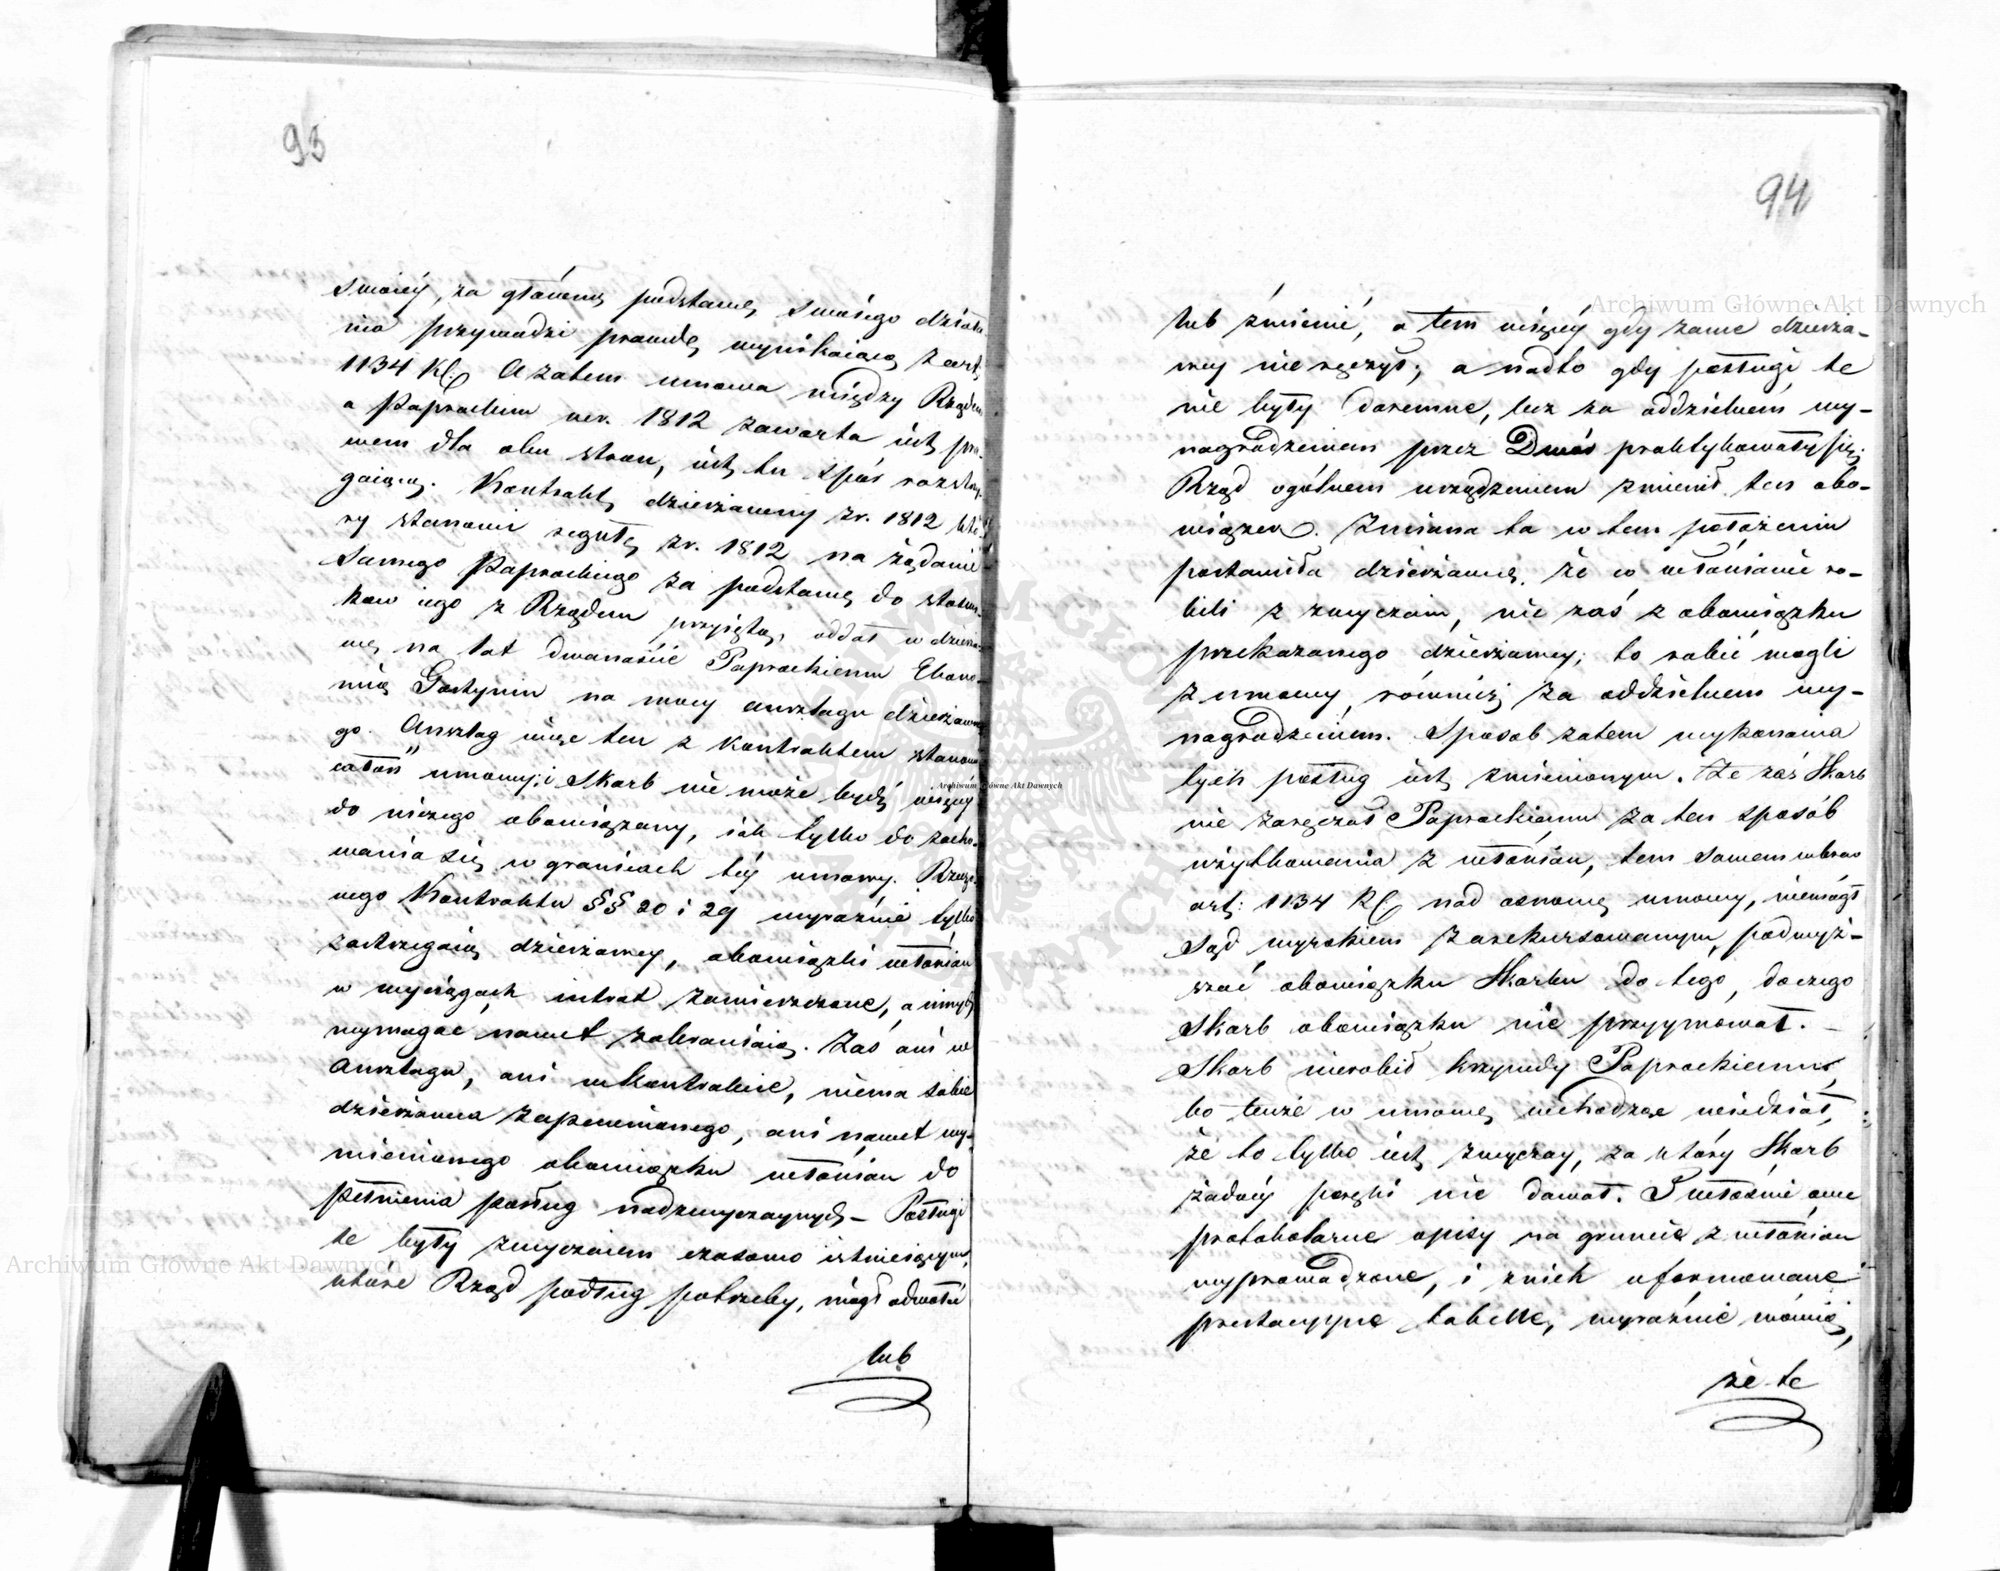 93
swoiéy, za główną podstawę swoiégo działa
nia przywodzi prawdę wynikaiącą z art:
1134 KC. A zatem umowa między Rządem
a Paprockim w r. 1812 zawarta iest pra-
wem dla obu stron, iest tu spór rozstrzy-
gaiącą. Kontrakt dzierżawny z r. 1812 któ-
ry stanowi regułę z r. 1812 na żądanie
samego Paprockiego za podstawę do stosun-
ków iego z Rządem przyiętą, oddał w dzierża-
wę na lat dwanaście Paprockiemu Ekono-
mią Gostynin na mocy anszlagu dzierżawne
go. Anszlag więc ten z kontraktem stanowi
całość umowy; i Skarb nie może bydź więcéy
do niczego obowiązany, iak tylko do zacho-
wania się w granicach téy umowy. Rzeczo-
nego Kontraktu §§ 20 i 29 wyraźnie tylko
zastrzegaią dzierżawcy, obowiązki włościan
w wyciągach intrat zamieszczone, a innych
wymagać nawet zabraniaią. Zaś ani w
Anszlagu, ani w kontrakcie, niema sobie
dzierżawca zapewnionego, ani nawet wy-
mienionego obowiązku włościan do
pełnienia posług nadzwyczaynych – Posługi
te były zwyczaiem czasowo istnieiącym,
które Rząd podług potrzeby, mógł odwołać
lub
94
lub zmienić, a tem więcéy gdy za nie dzierża-
wcy nie ręczył; a nadto gdy posługi te
nie były daremne, lecz za oddzielném wy-
nagrodzeniem przez Dwór praktykowały się;
Rząd ogólnem urządzeniem zmienił ten obo-
wiązek. Zmiana ta w tem położeniu
postawiła dzierżawcę, że co włościanie ro-
bili z zwyczaiu, nie zaś z obowiązku
przekazanego dzierżawcy; to robić mogli
z umowy, również za oddzielnem wy-
nagrodzeniem. Sposób zatem wykonania
tych posług iest zmienionym. Że zaś Skarb
nie zaręczał Paprockiemu za ten sposób
użytkowania z włościan, tem samem wbrew
art: 1134 KC nad osnowę umowy, niemógł
Sąd wyrokiem zarekursowanym, podwyż-
szać obowiązku Skarbu do tego, do czego
Skarb obowiązku nie przyymował. –
Skarb nierobił krzywdy Paprockiemu,
bo tenże w umowę wchodząc wiedział,
że to tylko iest zwyczay, za który Skarb
żadnéy poręki nie dawał. I właśnie owe
protokolarne opisy na gruncie z włościan
wyprowadzone, i z nich uformowane
prestacyyne tabelle, wyraźnie mówią,
że te
Archiwum Główne Akt Dawnych
Archiwum Główne Akt Dawnych
Archiwum Główne Akt Dawnych